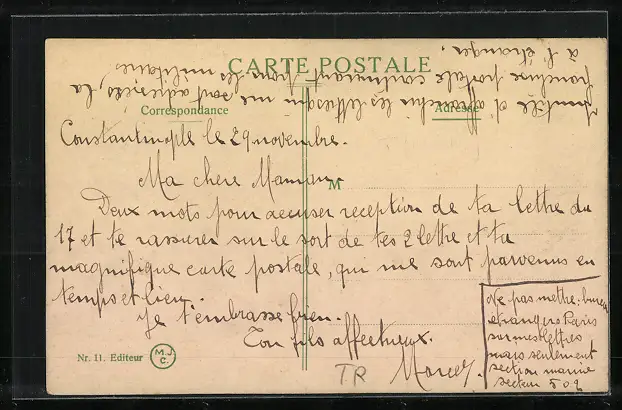 CARTE POSTALE
Correspondance
Adresse
Inutile d'affranchir les lettres qui me sont adressées, la
franchise postale continuant pour les militaires
à l'étranger.
Constantinople le 29 novembre.
Ma chere Maman
M
Deux mots pour accuser reception de ta lettre du
17 et te rassurer sur le sort de tes 2 lettre et ta
magnifique carte postale, qui me sont parvenus en
temps et lieu.
Je t'embrasse bien.
Ton fils affectueux.
Marcel.
Ne pas mettre: bureau
etrangers Paris
sur mes lettres
mais seulement
section marine
secteur 502
Nr. 11. Editeur
M.J.
C.
TR